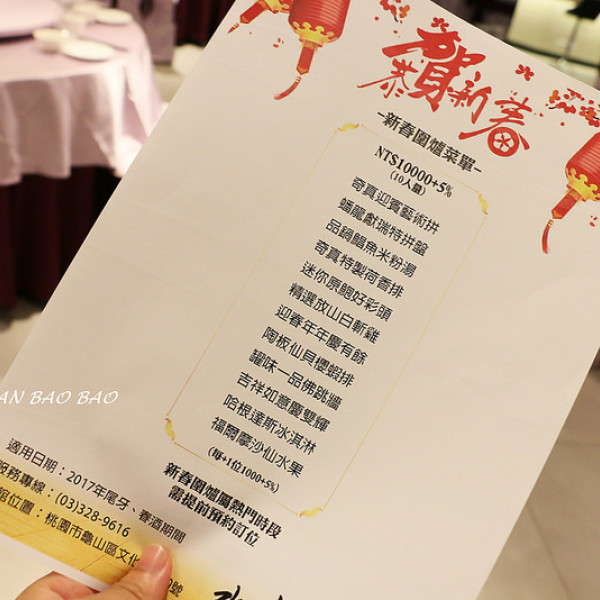 恭賀新春
-新春圍爐菜單-
NT$10000+5%
(10人量)
奇真迎賓藝術拼
蟠龍獻瑞特拼盤
品鍋鯧魚米粉湯
奇真特製荷香排
迷你原鮑好彩頭
精選放山白斬雞
迎春年年慶有餘
陶板仙貝櫻蝦排
罐味一品佛跳牆
吉祥如意慶雙輝
哈根達斯冰淇淋
福爾摩沙仙水果
(每+1位1000+5%)
新春圍爐屬熱門時段
需提前預約訂位
適用日期：2017年尾牙、春酒期間
服務專線：(03)328-9616
館位置：桃園市龜山區文化
號
AN BAO BAO